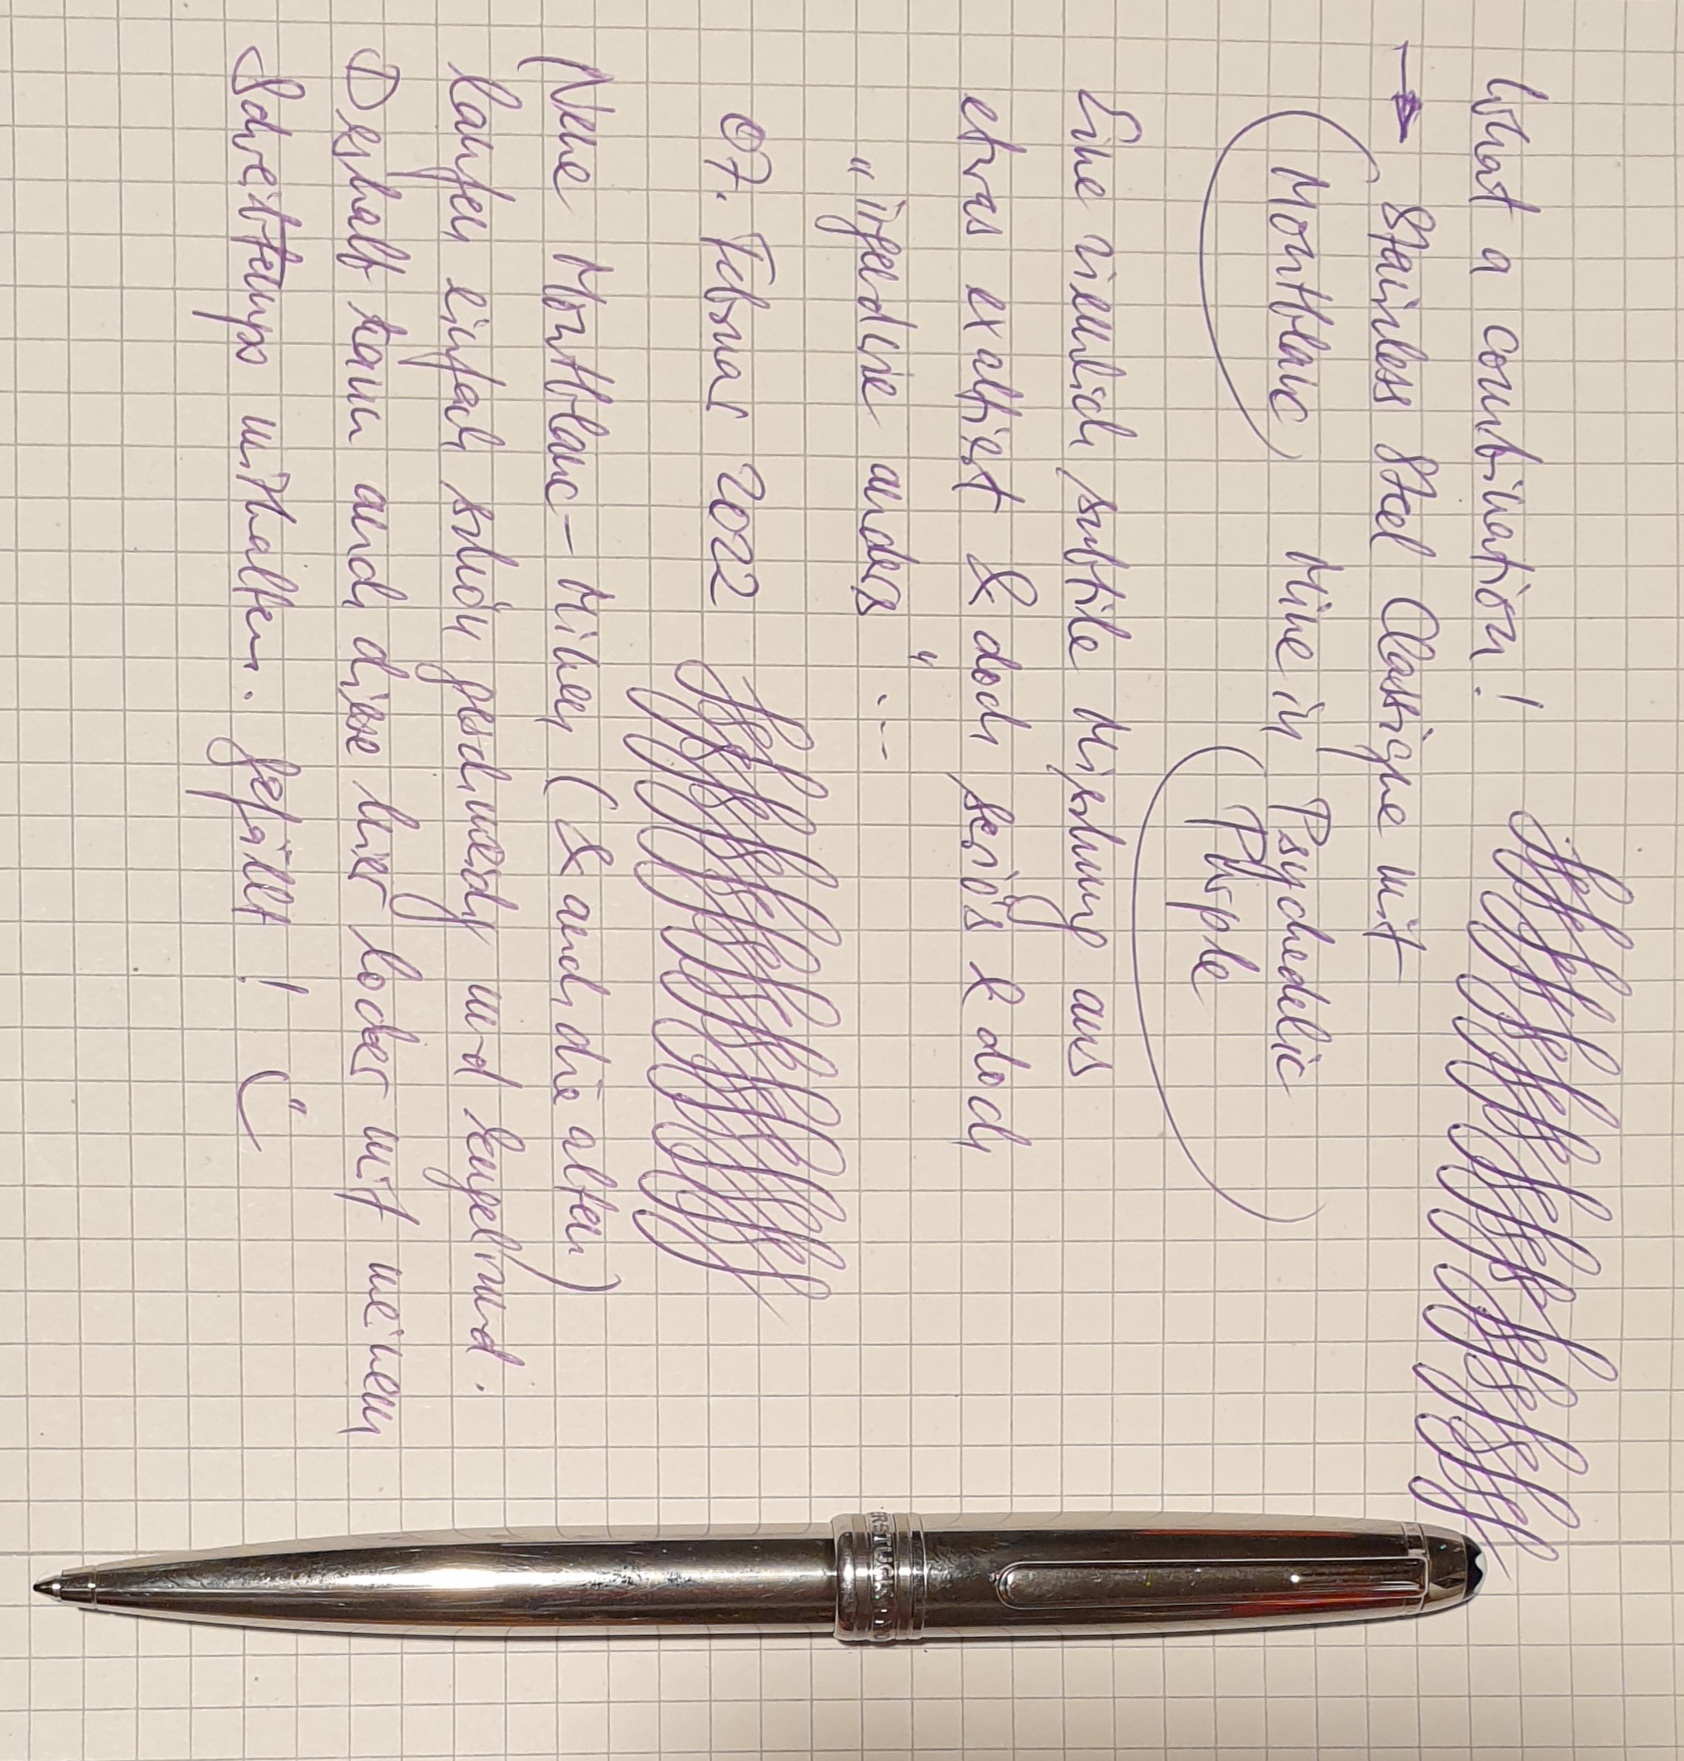 What a combination!
→ Stainless Steel Classique mit
Montblanc Mine in Psychedelic
Purple
Eine ziemlich subtile Mischung aus
etwas exaltiert & doch seriös & doch
„irgendwie anders" ---
07. Februar 2022
Neue Montblanc-Minen (& auch die alten)
laufen einfach schön geschmeidig und kugelrund.
Deshalb kann auch diese hier locker mit meinem
Schreibtempo mithalten. Gefällt!
ERSTÜCK